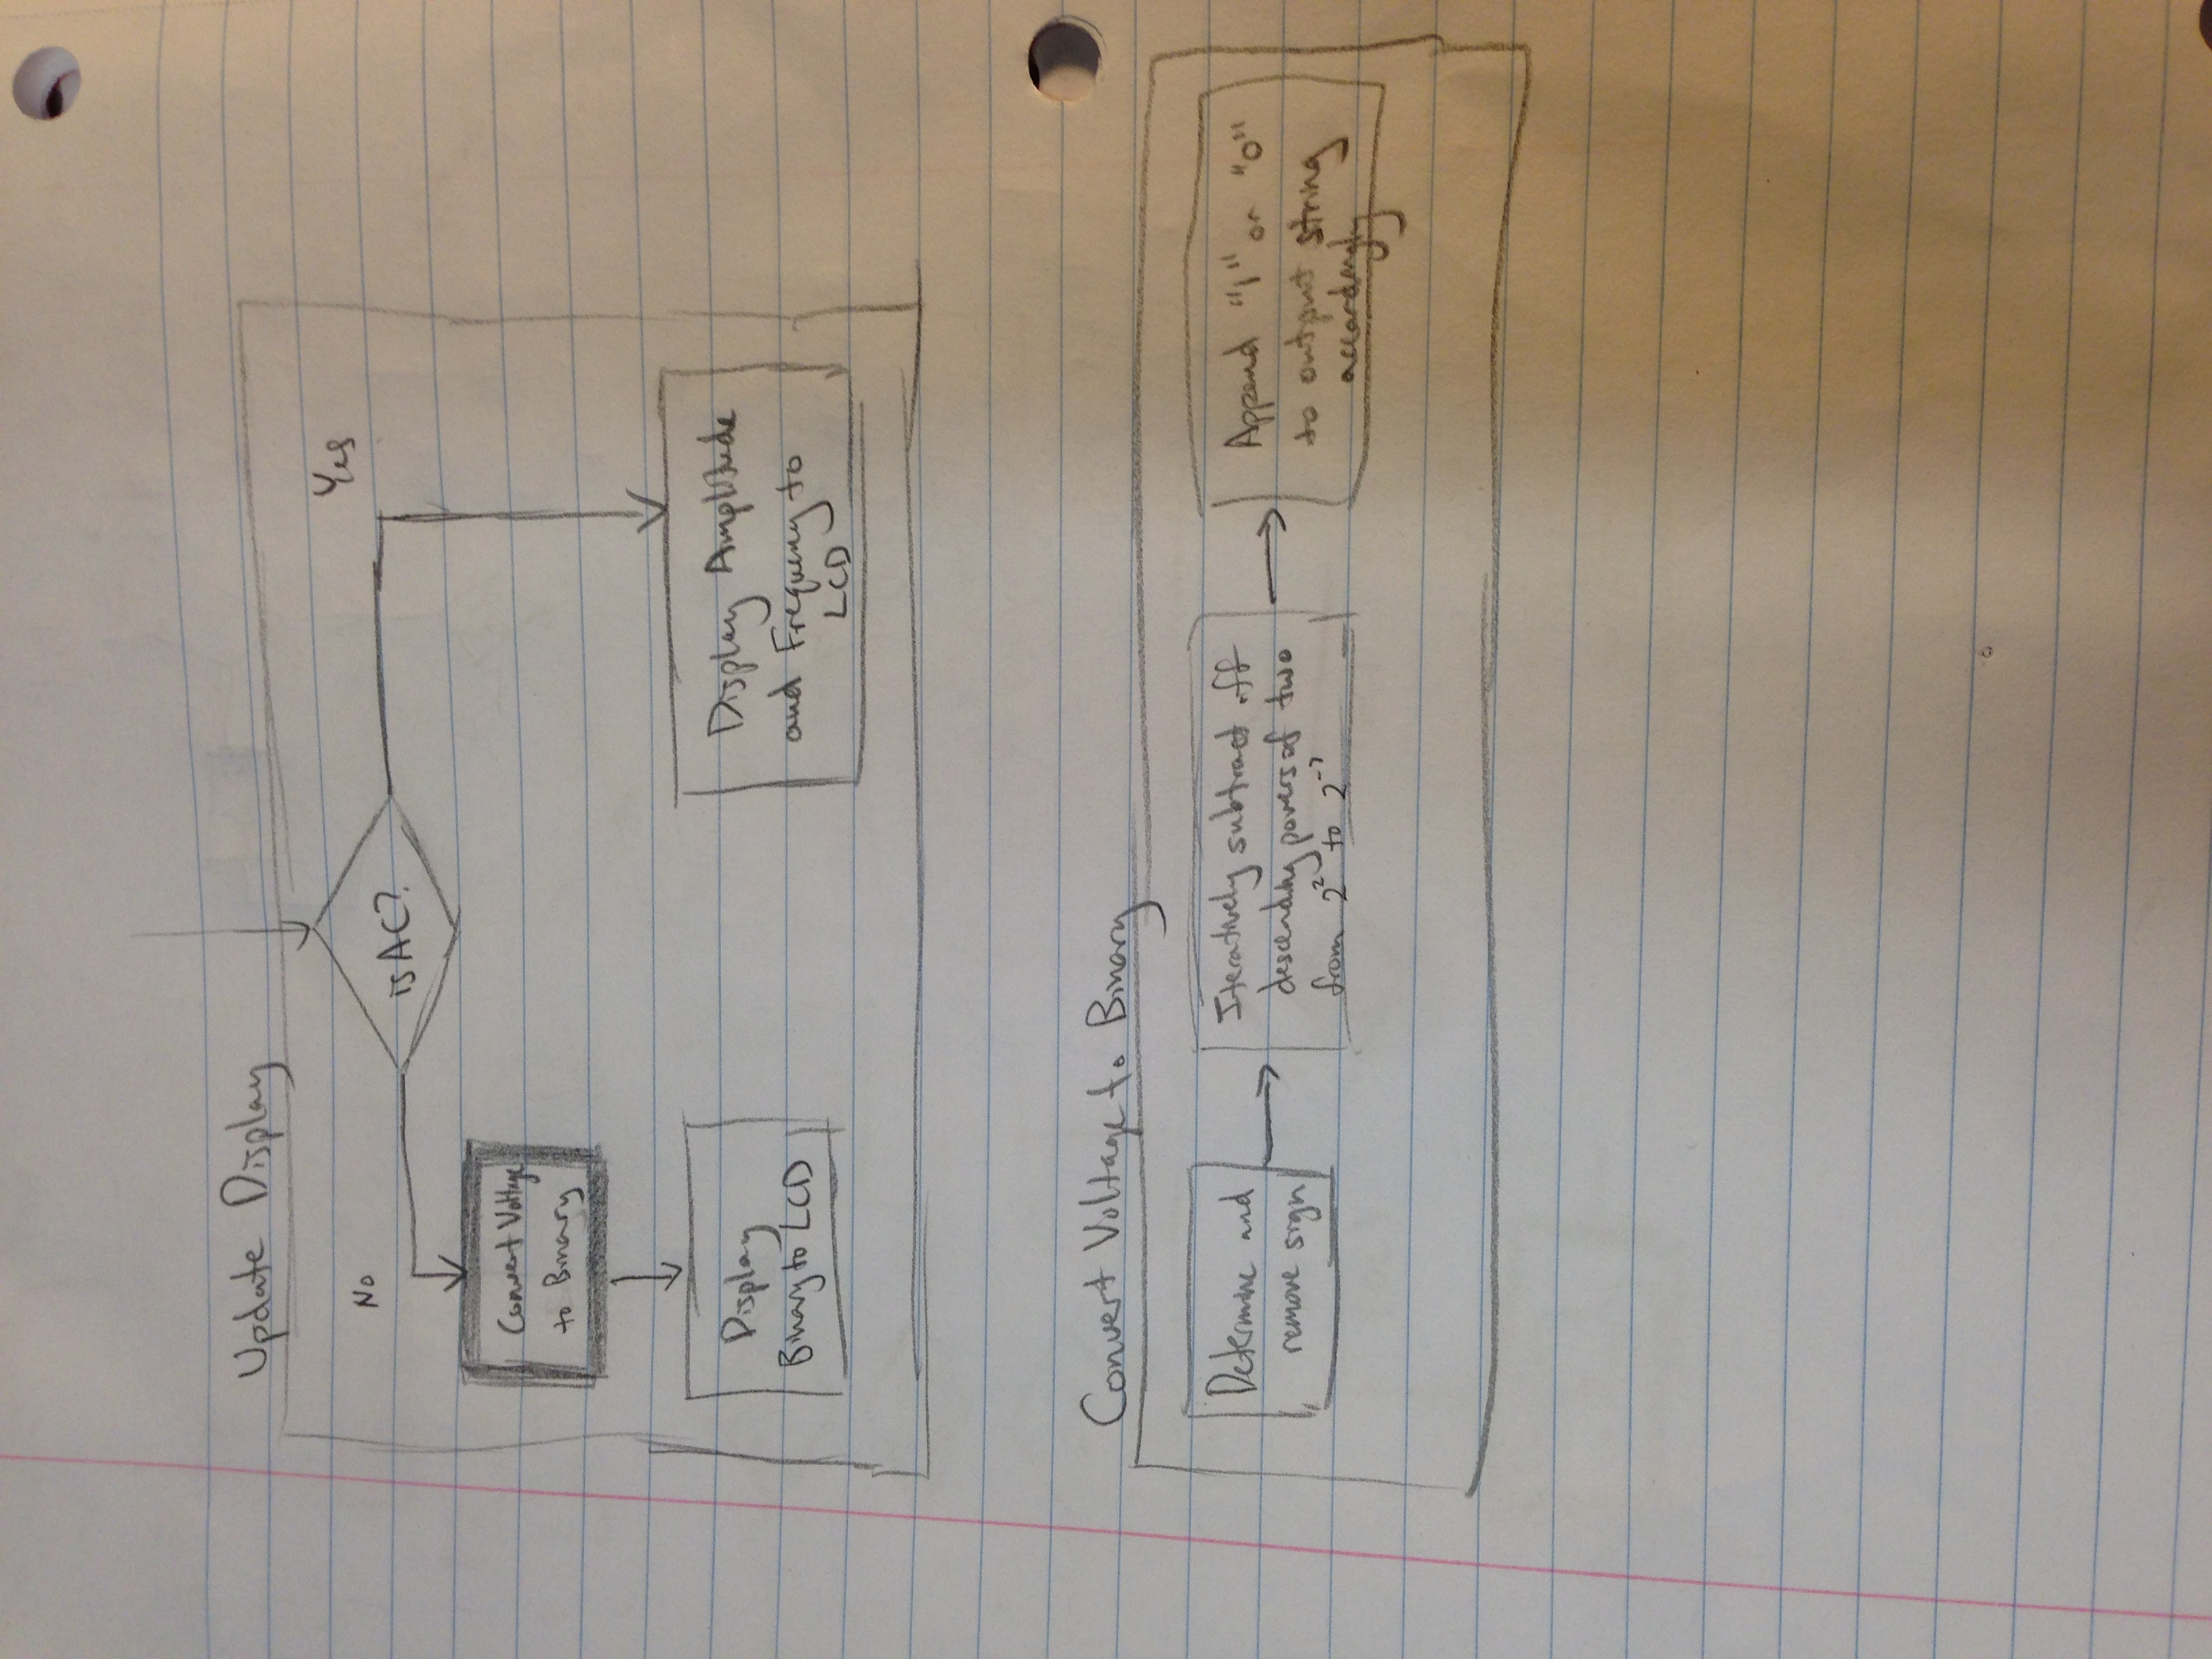 Update Display
No
isAC?
Yes
Convert Voltage
to Binary
Display
Binary to LCD
Display Amplitude
and Frequency to
LCD
Convert Voltage to Binary
Determine and
remove sign
Iteratively subtract off
descending powers of two
from 2² to 2⁻⁷
Append "1" or "0"
to output string
accordingly